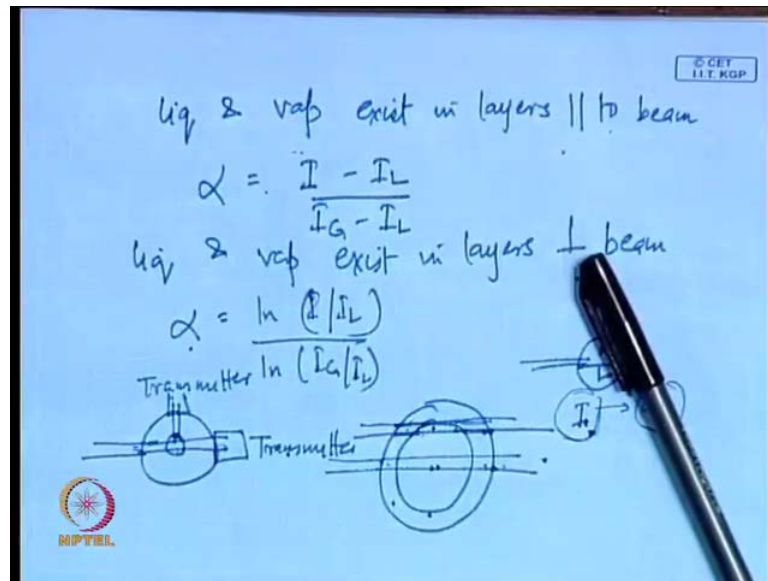 © CET
I.I.T. KGP
liq & vap exist in layers || to beam
α = I - I_L
I_G - I_L
liq & vap exist in layers ⊥ beam
α = ln (I/I_L)
ln (I_G/I_L)
Transmitter
Transmitter
I₀ →
NPTEL